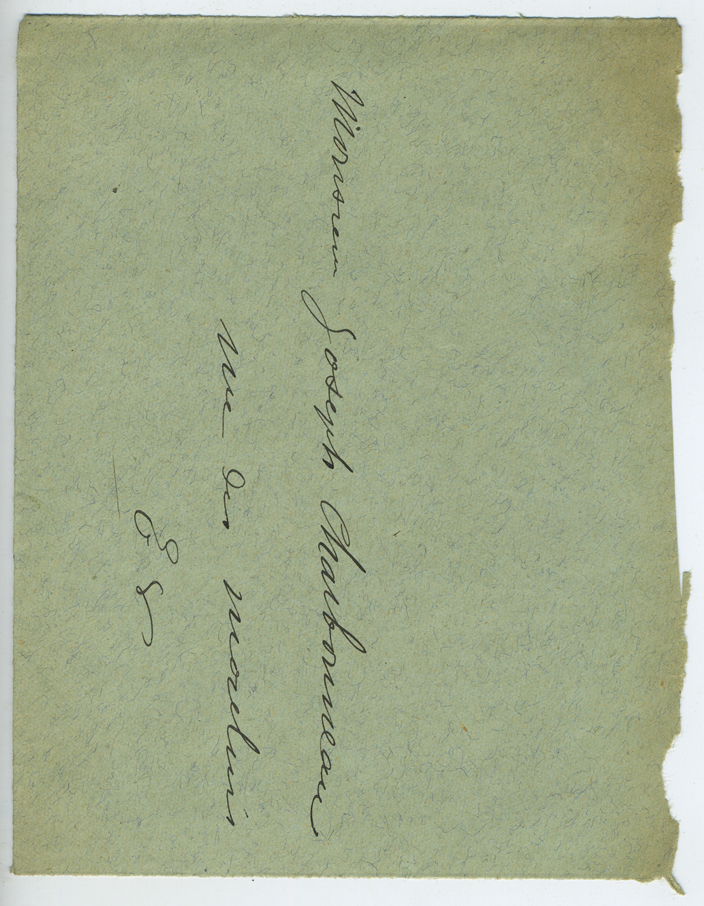 Monsieur Joseph Charbonneau
rue des moulins
E V